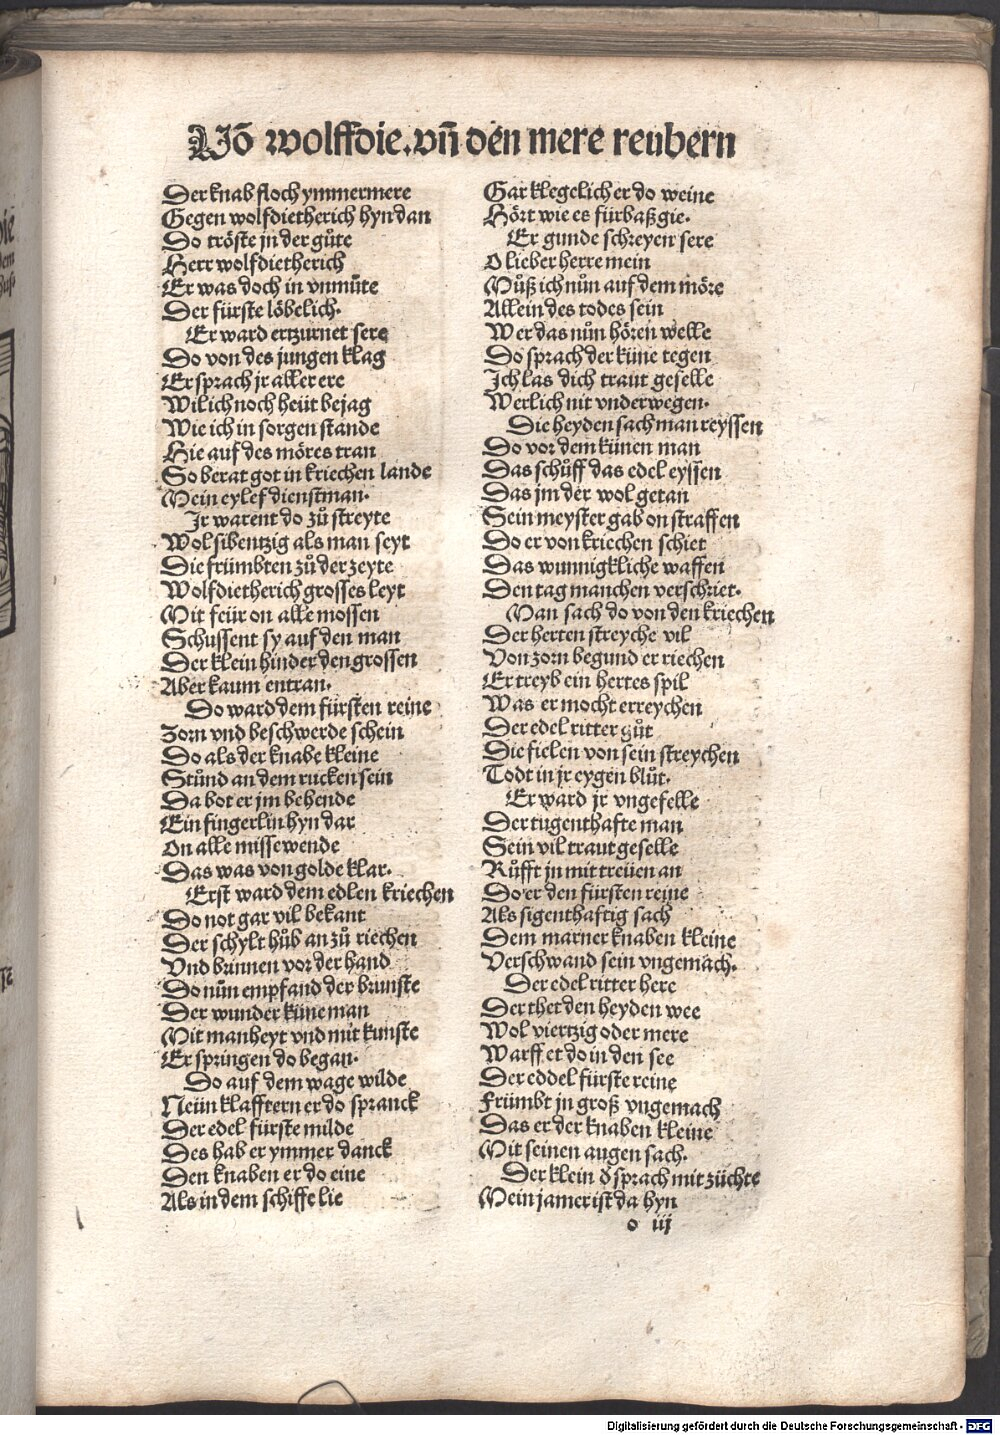 Võ wolffdie.vñ den mere reubern
Der knab floch ymmermere
Gegen wolfdietherich hyndan
Do tröste jn der gůte
Herr wolfdietherich
Er was doch in vnmůte
Der fürste löbelich.
Er ward ertzurnet sere
Do von des jungen klag
Er sprach jr aller ere
Wil ich noch heüt bejag
Wie ich in sorgen stande
Hie auf des möres tran
So berat got in kriechen lande
Mein eylef dienstman.
Jr warent do zů streyte
Wol sibentzig als man seyt
Die frümbten zů der zeyte
Wolfdietherich grosses leyt
Mit feür on alle mossen
Schussent sy auf den man
Der klein hinder den grossen
Aber kaum entran.
Do ward dem fürsten reine
Zorn vnd beschwerde schein
Do als der knabe kleine
Stůnd an dem rucken sein
Da bot er jm behende
Ein fingerlin hyn dar
On alle missewende
Das was von golde klar.
Erst ward dem edlen kriechen
Do not gar vil bekant
Der schylt hůb an zů riechen
Vnd brinnen vor der hand
Do nůn empfand der brunste
Der wunder küne man
Mit manheyt vnd mit kunste
Er springen do began.
Do auf dem wage wilde
Neün klafftern er do spranck
Der edel fürste milde
Des hab er ymmer danck
Den knaben er do eine
Als in dem schiffe lie
Gar klegelich er do weine
Hört wie es fürbaß gie.
Er gunde schreyen sere
O lieber herre mein
Můß ich nůn auf dem möre
Allein des todes sein
Wer das nůn hören welle
Do sprach der küne tegen
Ich las dich traut geselle
Werlich nit vnderwegen.
Die heyden sach man reyssen
Do vor dem künen man
Das schůff das edel eyssen
Das jm der wol getan
Sein meyster gab on straffen
Do er von kriechen schiet
Das wunnigkliche waffen
Den tag manchen verschriet.
Man sach do von den kriechen
Der herten streyche vil
Von zorn begund er riechen
Er treyb ein hertes spil
Was er mocht erreychen
Der edel ritter gůt
Die fielen von sein streychen
Todt in jr eygen blůt.
Er ward jr vngefelle
Der tugenthafte man
Sein vil traut geselle
Růfft jn mit treüen an
Do er den fürsten reine
Als sigenthaftig sach
Dem marner knaben kleine
Verschwand sein vngemach.
Der edel ritter here
Der thet den heyden wee
Wol viertzig oder mere
Warff et do in den see
Der eddel fürste reine
Frümbt jn groß vngemach
Das er der knaben kleine
Mit seinen augen sach.
Der klein d̕ sprach mit züchte
Mein jamer ist da hyn
o iij
Digitalisierung gefördert durch die Deutsche Forschungsgemeinschaft - DFG